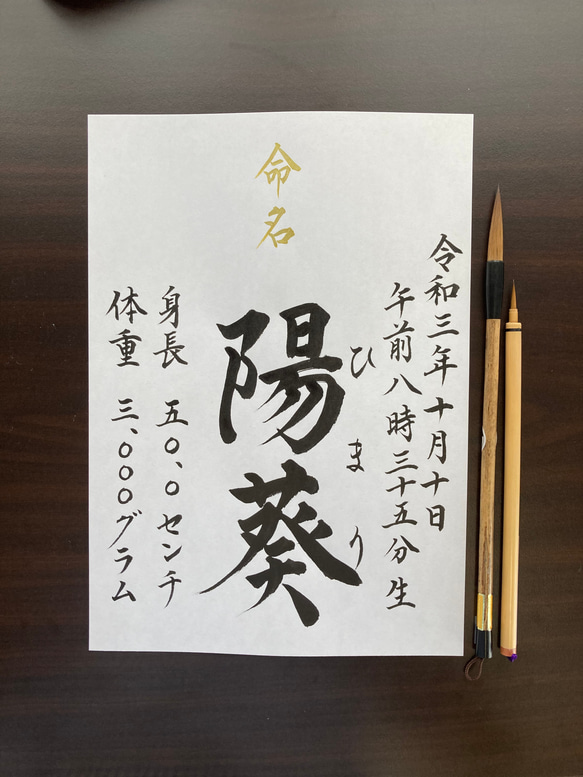 命名
令和三年十月十日
午前八時三十五分生
ひまり
陽葵
身長 五〇、〇センチ
体重 三、〇〇〇グラム